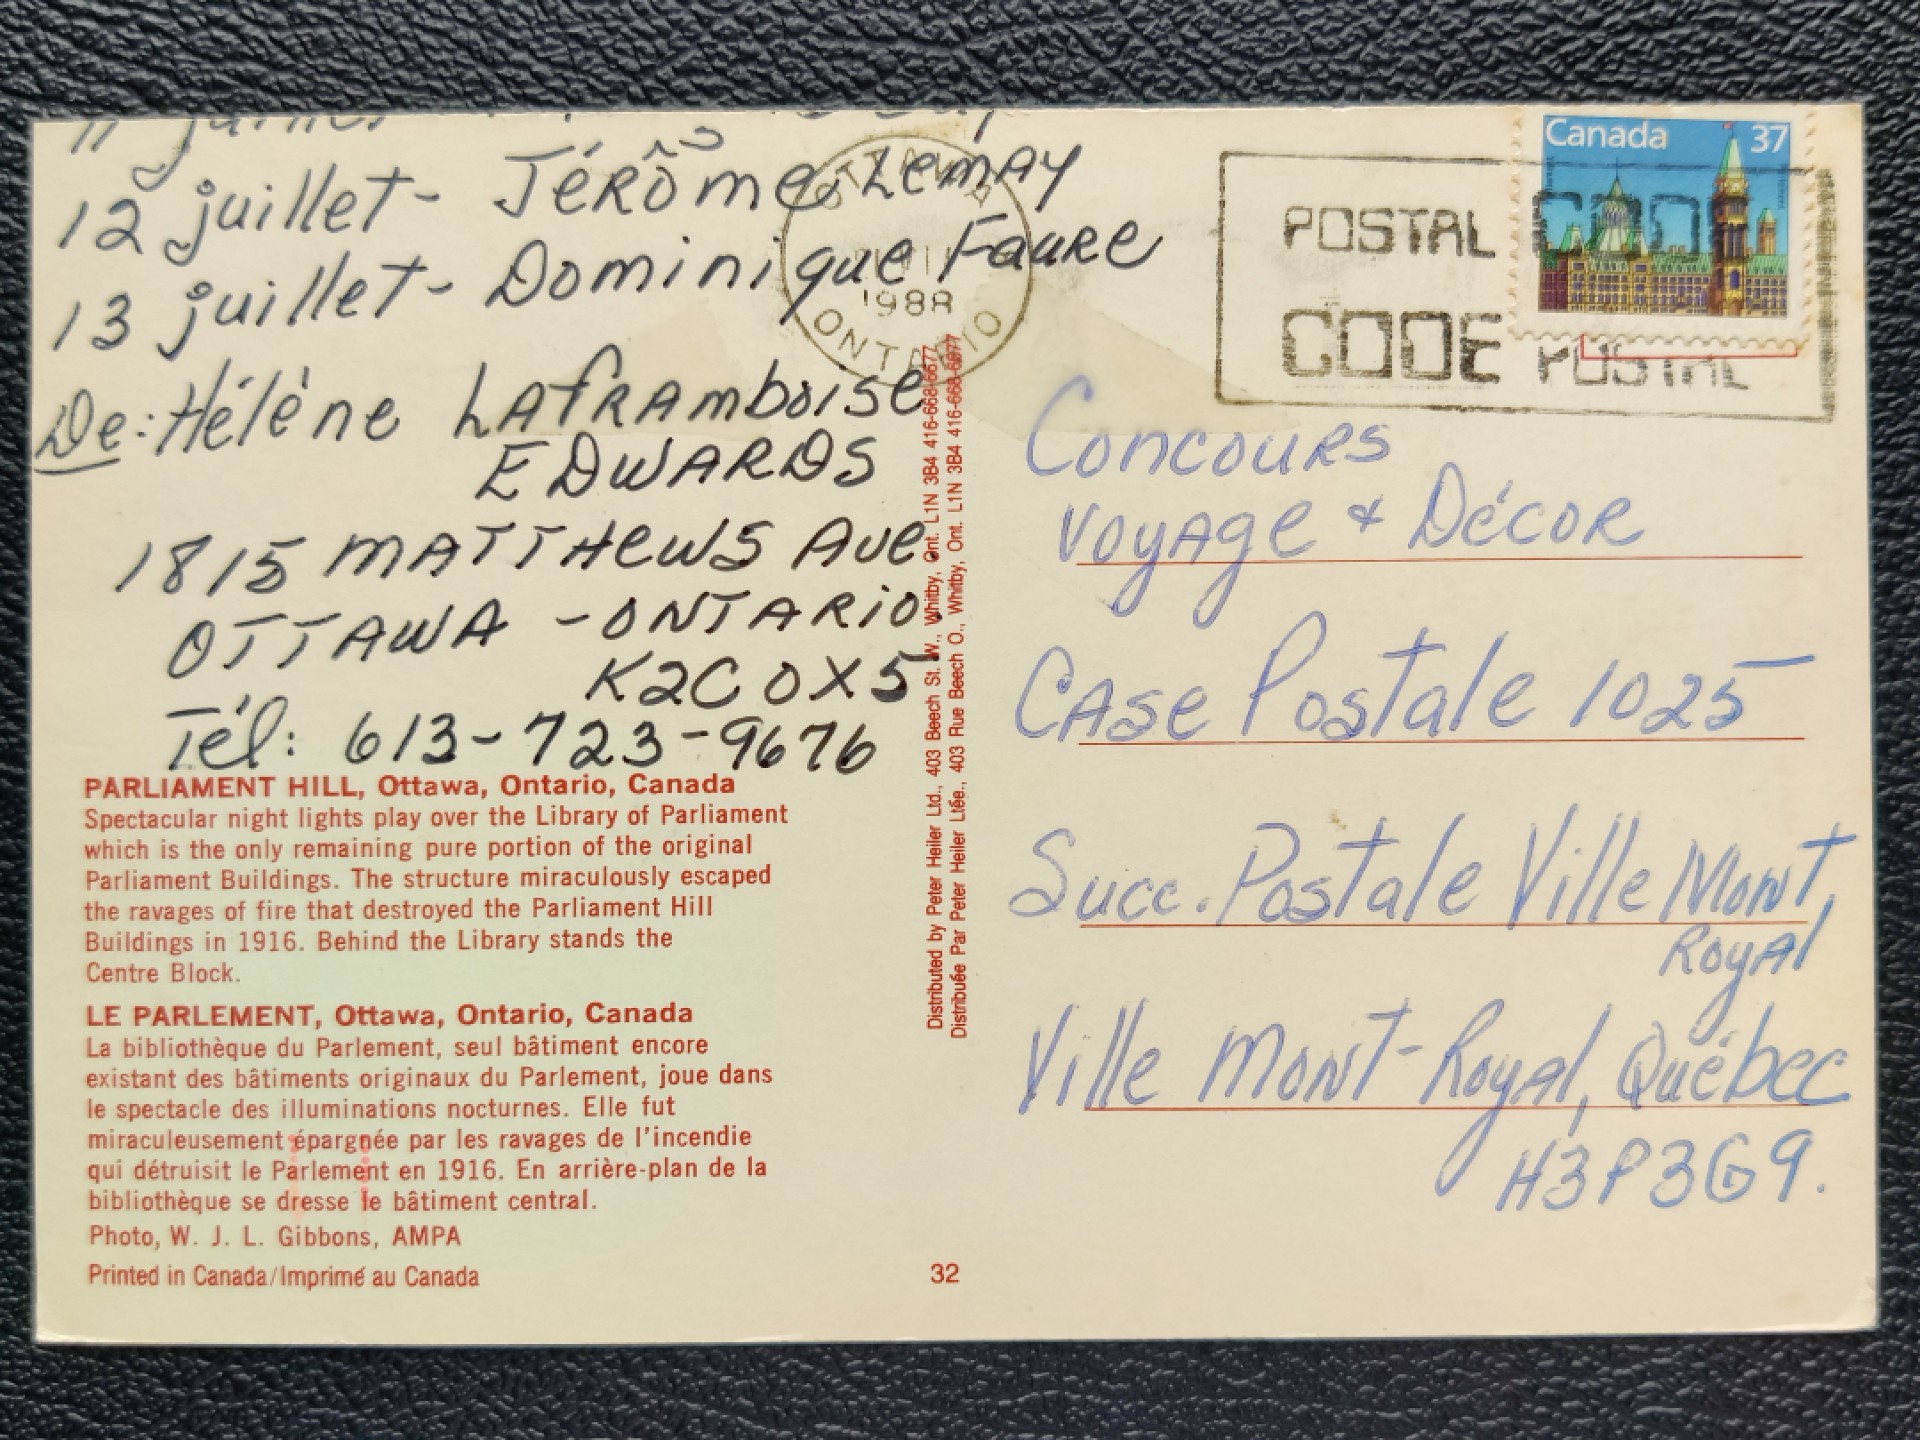 11 juillet
12 juillet - Jérôme Lemay
13 juillet - Dominique Faure
De: Hélène Laframboise
EDWARDS
1815 MATTHEWS Ave
OTTAWA - ONTARIO
K2C 0X5
Tél: 613-723-9676
PARLIAMENT HILL, Ottawa, Ontario, Canada
Spectacular night lights play over the Library of Parliament
which is the only remaining pure portion of the original
Parliament Buildings. The structure miraculously escaped
the ravages of fire that destroyed the Parliament Hill
Buildings in 1916. Behind the Library stands the
Centre Block.
LE PARLEMENT, Ottawa, Ontario, Canada
La bibliothèque du Parlement, seul bâtiment encore
existant des bâtiments originaux du Parlement, joue dans
le spectacle des illuminations nocturnes. Elle fut
miraculeusement épargnée par les ravages de l'incendie
qui détruisit le Parlement en 1916. En arrière-plan de la
bibliothèque se dresse le bâtiment central.
Photo, W. J. L. Gibbons, AMPA
Printed in Canada/Imprimé au Canada
Distributed by Peter Heiler Ltd., 403 Beech St. W., Whitby, Ont. L1N 3B4 416-668-6677
Distribuée Par Peter Heiler Ltée., 403 Rue Beech O., Whitby, Ont. L1N 3B4 416-668-6677
32
OTTAWA
1988
ONTARIO
POSTAL CODE
CODE POSTAL
Canada 37
Concours
Voyage & Décor
Case Postale 1025
Succ. Postale Ville Mont
Royal
Ville Mont-Royal, Québec
H3P3G9.